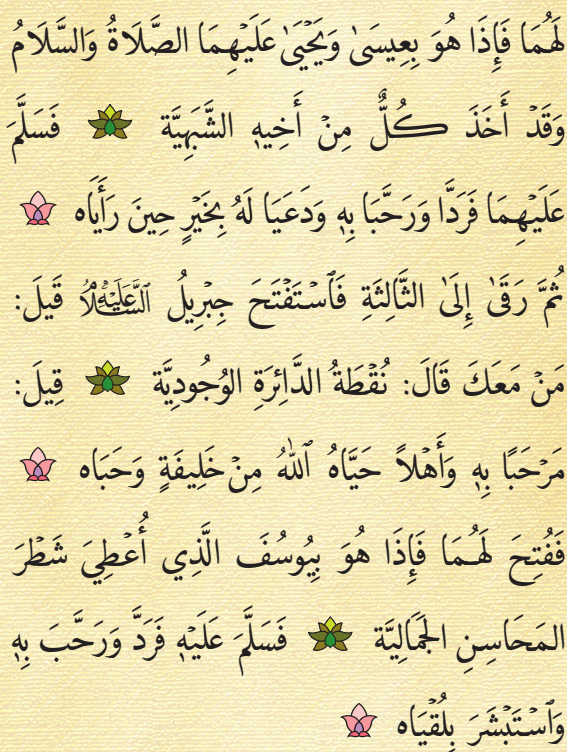 لَهُمَا فَإِذَا هُوَ بِعِيسَىٰ وَيَحْيَىٰ عَلَيْهِمَا الصَّلَاةُ وَالسَّلَامُ
وَقَدْ أَخَذَ كُلٌّ مِنْ أَخِيهِ الشَّبَهِيَّة فَسَلَّمَ
عَلَيْهِمَا فَرَدَّا وَرَحَّبَا بِهِ وَدَعَيَا لَهُ بِخَيْرٍ حِينَ رَأَيَاه
ثُمَّ رَقَىٰ إِلَىٰ الثَّالِثَةِ فَٱسْتَفْتَحَ جِبْرِيلُ عَلَيْهِ ٱلسَّلَامُ قَيلَ:
مَنْ مَعَكَ قَالَ: نُقْطَةُ الدَّائِرَةِ الوُجُودِيَّة قِيلَ:
مَرْحَبًا بِهِ وَأَهْلاً حَيَّاهُ ٱللهُ مِنْ خَلِيفَةٍ وَحَبَاه
فَفُتِحَ لَهُمَا فَإِذَا هُوَ بِيُوسُفَ الَّذِي أُعْطِيَ شَطْرَ
المَحَاسِنِ الجَمَالِيَّة فَسَلَّمَ عَلَيْهِ فَرَدَّ وَرَحَّبَ بِهِ
وَٱسْتَبْشَرَ بِلُقْيَاه